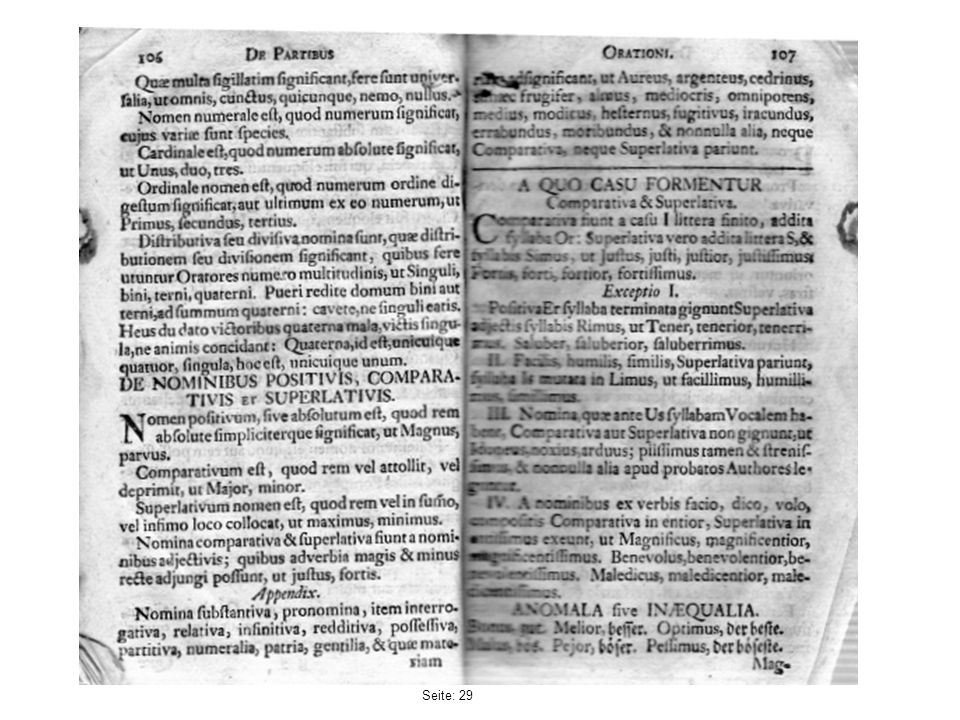 106 DE PARTIBUS
Quæ multa sigillatim significant, fere sunt univer-
salia, ut omnis, cunctus, quicunque, nemo, nullus.
Nomen numerale est, quod numerum significat,
cujus variæ sunt species.
Cardinale est, quod numerum absolute significat,
ut Unus, duo, tres.
Ordinale nomen est, quod numerum ordine di-
gestum significat, aut ultimum ex eo numerum, ut
Primus, secundus, tertius.
Distributiva seu divisiva nomina sunt, quæ distri-
butionem seu divisionem significant, quibus fere
utuntur Oratores numero multitudinis, ut Singuli,
bini, terni, quaterni. Pueri redite domum bini aut
terni, ad summum quaterni: cavete, ne singuli eatis.
Heus du dato victoribus quaterna mala, victis singu-
la, ne animis concidant: Quaterna, id est, unicuique
quatuor, singula, hoc est, unicuique unum.
DE NOMINIBUS POSITIVIS, COMPARA-
TIVIS ET SUPERLATIVIS.
Nomen positivum, sive absolutum est, quod rem
absolute simpliciterque significat, ut Magnus,
parvus.
Comparativum est, quod rem vel attollit, vel
deprimit, ut Major, minor.
Superlativum nomen est, quod rem vel in sum̃o,
vel infimo loco collocat, ut maximus, minimus.
Nomina comparativa & superlativa fiunt a nomi-
nibus adjectivis; quibus adverbia magis & minus
recte adjungi possunt, ut justus, fortis.
Appendix.
Nomina substantiva, pronomina, item interro-
gativa, relativa, infinitiva, redditiva, possessiva,
partitiva, numeralia, patria, gentilia, & quæ mate-
riam
ORATIONI. 107
adsignificant, ut Aureus, argenteus, cedrinus,
frugifer, almus, mediocris, omnipotens,
medius, modicus, hesternus, fugitivus, iracundus,
errabundus, moribundus, & nonnulla alia, neque
Comparativa, neque Superlativa pariunt.
A QUO CASU FORMENTUR
Comparativa & Superlativa.
Comparativa fiunt a casu I littera finito, addita
syllaba Or: Superlativa vero addita littera S, &
syllaba Simus, ut Justus, justi, justior, justissimus:
Fortis, forti, fortior, fortissimus.
Exceptio I.
Positiva Er syllaba terminata gignunt Superlativa
adjectis syllabis Rimus, ut Tener, tenerior, tenerri-
mus. Saluber, salubrior, saluberrimus.
II. Facilis, humilis, similis, Superlativa pariunt,
syllaba Is mutata in Limus, ut facillimus, humilli-
mus, simillimus.
III. Nomina, quæ ante Us syllabam Vocalem ha-
bent, Comparativa aut Superlativa non gignunt, ut
noxius, arduus; piissimus tamen & strenuis-
simus & nonnulla alia apud probatos Authores le-
guntur.
IV. A nominibus ex verbis facio, dico, volo,
compositis Comparativa in entior, Superlativa in
entissimus exeunt, ut Magnificus, magnificentior,
magnificentissimus. Benevolus, benevolentior, be-
nevolentissimus. Maledicus, maledicentior, male-
dicentissimus.
ANOMALA sive INÆQUALIA.
Bonus, gut. Melior, besser. Optimus, der beste.
Malus, bös. Pejor, böser. Pessimus, der böseste.
Mag-
Seite: 29